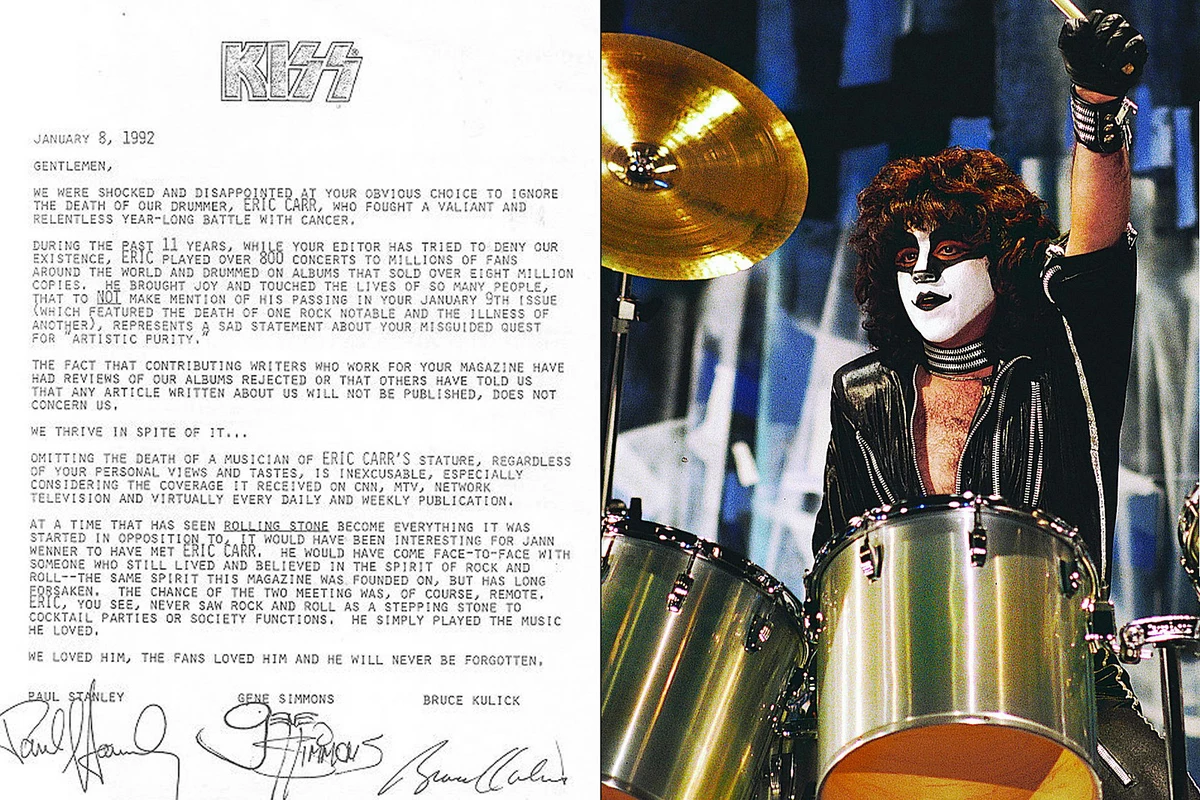 KISS®
JANUARY 8, 1992
GENTLEMEN,
WE WERE SHOCKED AND DISAPPOINTED AT YOUR OBVIOUS CHOICE TO IGNORE
THE DEATH OF OUR DRUMMER, ERIC CARR, WHO FOUGHT A VALIANT AND
RELENTLESS YEAR-LONG BATTLE WITH CANCER.
DURING THE PAST 11 YEARS, WHILE YOUR EDITOR HAS TRIED TO DENY OUR
EXISTENCE, ERIC PLAYED OVER 800 CONCERTS TO MILLIONS OF FANS
AROUND THE WORLD AND DRUMMED ON ALBUMS THAT SOLD OVER EIGHT MILLION
COPIES. HE BROUGHT JOY AND TOUCHED THE LIVES OF SO MANY PEOPLE,
THAT TO NOT MAKE MENTION OF HIS PASSING IN YOUR JANUARY 9TH ISSUE
(WHICH FEATURED THE DEATH OF ONE ROCK NOTABLE AND THE ILLNESS OF
ANOTHER), REPRESENTS A SAD STATEMENT ABOUT YOUR MISGUIDED QUEST
FOR "ARTISTIC PURITY."
THE FACT THAT CONTRIBUTING WRITERS WHO WORK FOR YOUR MAGAZINE HAVE
HAD REVIEWS OF OUR ALBUMS REJECTED OR THAT OTHERS HAVE TOLD US
THAT ANY ARTICLE WRITTEN ABOUT US WILL NOT BE PUBLISHED, DOES NOT
CONCERN US.
WE THRIVE IN SPITE OF IT...
OMITTING THE DEATH OF A MUSICIAN OF ERIC CARR'S STATURE, REGARDLESS
OF YOUR PERSONAL VIEWS AND TASTES, IS INEXCUSABLE, ESPECIALLY
CONSIDERING THE COVERAGE IT RECEIVED ON CNN, MTV, NETWORK
TELEVISION AND VIRTUALLY EVERY DAILY AND WEEKLY PUBLICATION.
AT A TIME THAT HAS SEEN ROLLING STONE BECOME EVERYTHING IT WAS
STARTED IN OPPOSITION TO, IT WOULD HAVE BEEN INTERESTING FOR JANN
WENNER TO HAVE MET ERIC CARR. HE WOULD HAVE COME FACE-TO-FACE WITH
SOMEONE WHO STILL LIVED AND BELIEVED IN THE SPIRIT OF ROCK AND
ROLL--THE SAME SPIRIT THIS MAGAZINE WAS FOUNDED ON, BUT HAS LONG
FORSAKEN. THE CHANCE OF THE TWO MEETING WAS, OF COURSE, REMOTE.
ERIC, YOU SEE, NEVER SAW ROCK AND ROLL AS A STEPPING STONE TO
COCKTAIL PARTIES OR SOCIETY FUNCTIONS. HE SIMPLY PLAYED THE MUSIC
HE LOVED.
WE LOVED HIM, THE FANS LOVED HIM AND HE WILL NEVER BE FORGOTTEN.
PAUL STANLEY GENE SIMMONS BRUCE KULICK
Paul Stanley Gene Simmons Bruce Kulick